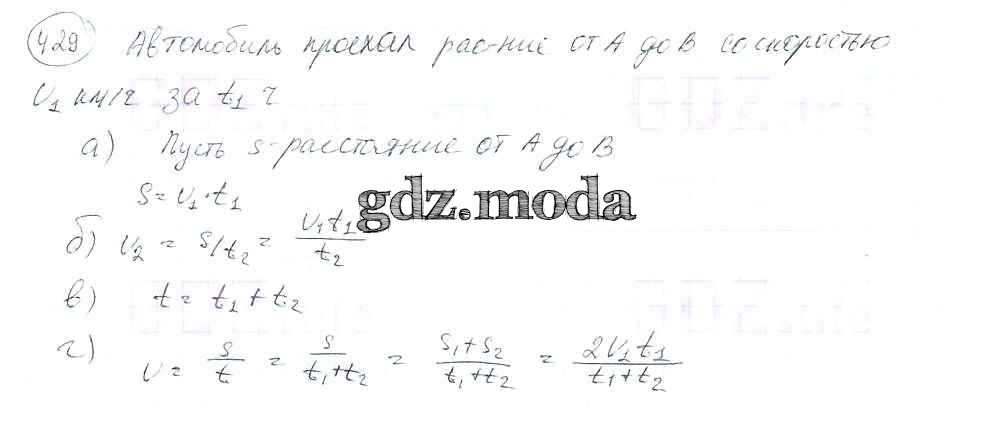 429 Автомобиль проехал рас-ние от А до В со скоростью
V₁ км/ч за t₁ ч
а) Пусть s-расстояние от А до В
S = V₁·t₁
gdz.moda
б) V₂ = S/t₂ = V₁t₁/t₂
в) t = t₁ + t₂
г) V = s/t = s/(t₁+t₂) = (S₁+S₂)/(t₁+t₂) = 2V₁t₁/(t₁+t₂)